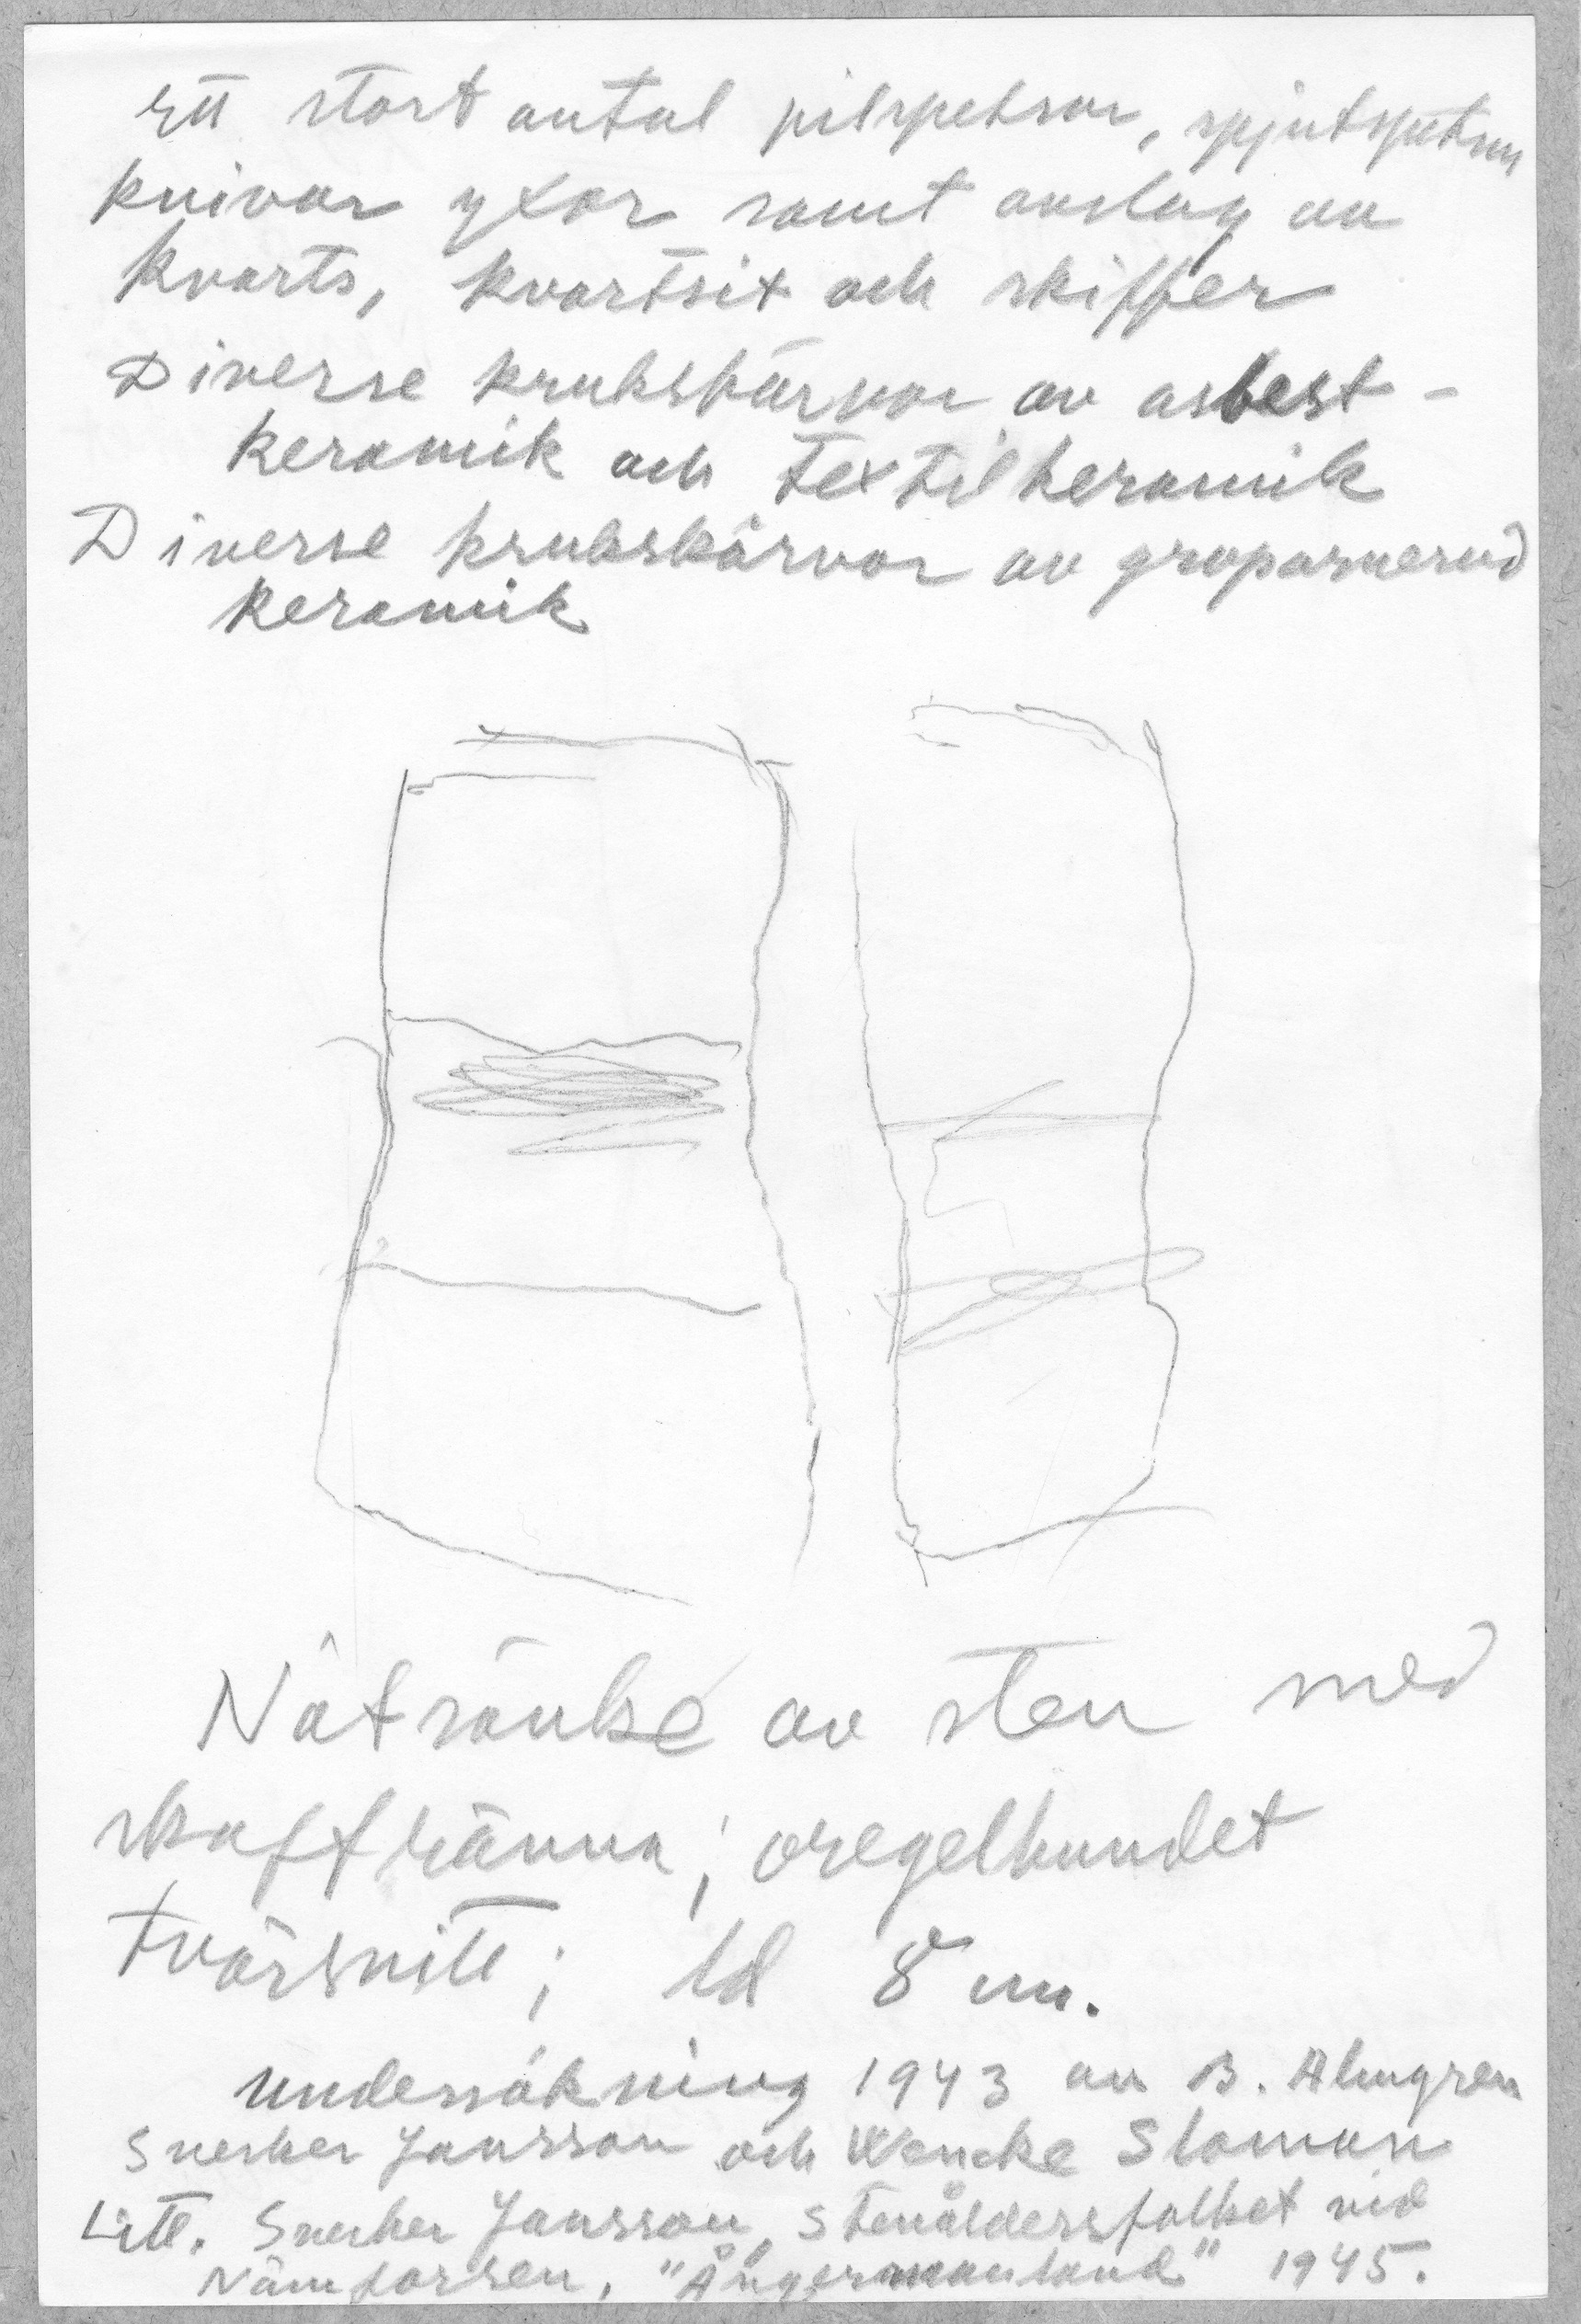 Ett stort antal pilspetsar, spjutspetsar
knivar yxor samt avslag av
kvarts, kvartsit och skiffer
Diverse krukskärvor av asbest-
keramik och textilkeramik
Diverse krukskärvor av gropornerad
keramik
Nätsänke av sten med
skaftränna; oregelbundet
tvärsnitt; ld 8 cm.
Undersökning 1943 av B. Almgren
Sverker Jansson och Wencke Slomann
Litt. Sverker Jansson, Stenåldersfolket vid
Nämforsen, "Ångermanland" 1945.